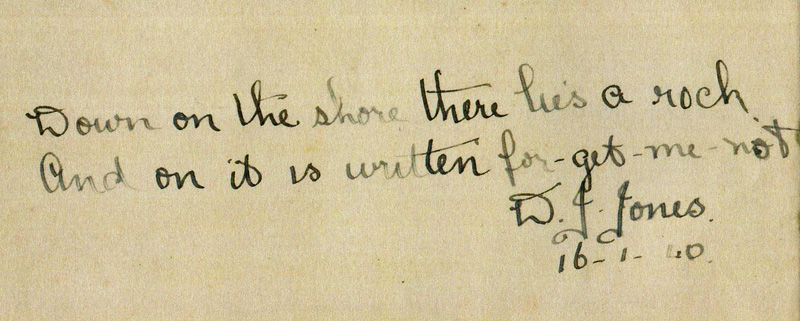 Down on the shore there lies a rock
And on it is written for-get-me-not
D. J. Jones.
16-1-40.